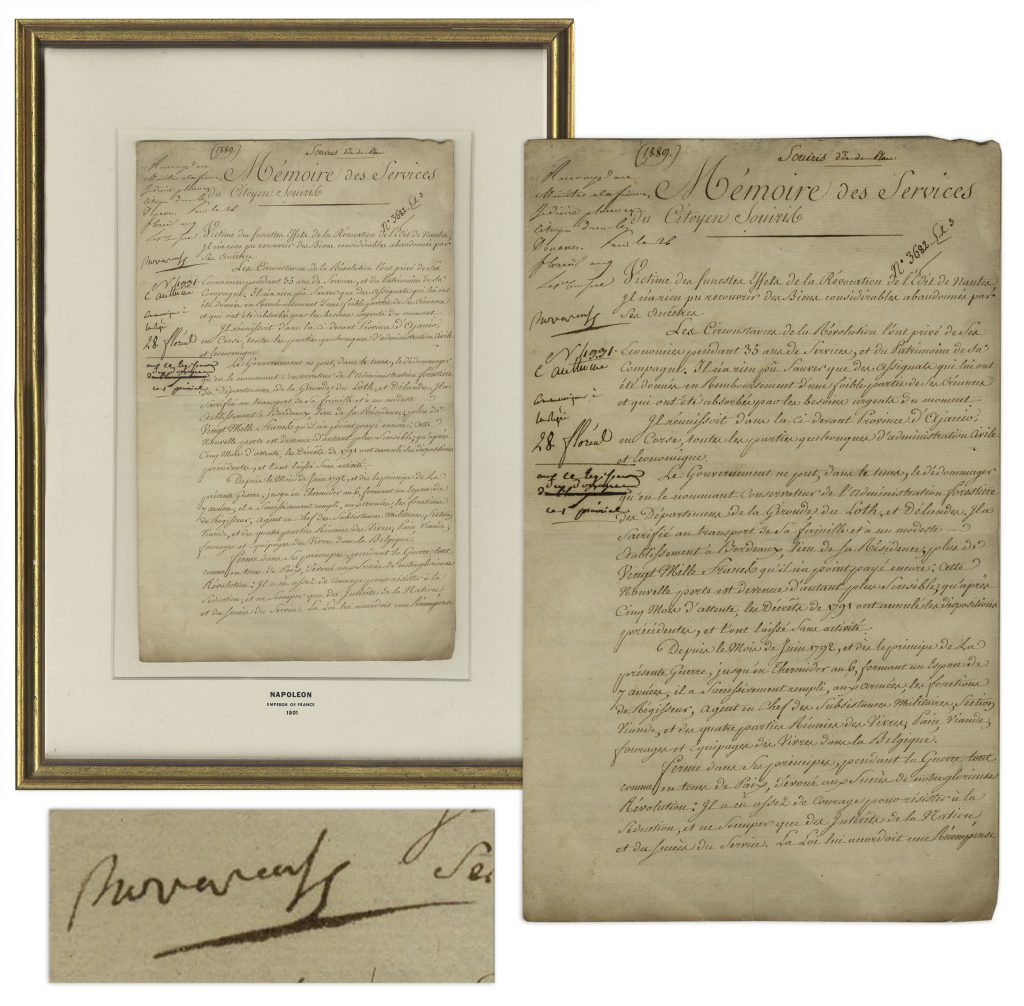 (1889.)
Souiris
Mémoire des Services
Du Citoyen Souiris
N° 3682
Victime des funestes Effets de la Révocation de l'Edit de Nantes,
Il n'a rien pu recouvrer des Biens considérables abandonnés par
Ses Ancêtres
Les Circonstances de la Révolution l'ont privé de Ses
Economies pendant 35 ans de Services, et du Patrimoine de Sa
Compagne, Il n'a rien pu Sauver que des Assignats qui lui ont
été donnés en Remboursement d'une foible partie de Ses Créances
et qui ont été absorbés par les besoins urgents du moment.
Il réunissoit dans la ci-devant Province d'Ajaccio,
en Corse, toutes les parties quelconques d'administration Civile
et Economique.
Le Gouvernement ne put, dans le tems, le dédommager
qu'en le nommant Conservateur de l'Administration forestière
des Départemens de la Gironde du Loth, et Délandes, Il a
Sacrifié au transport de Sa famille et à un modeste
Etablissement à Bordeaux, lieu de Sa Résidence, plus de
Vingt Mille Francs qu'il n'a point payé encore: Cette
Nouvelle perte est devenue d'autant plus Sensible, qu'après
Cinq Mois d'attente, les Décrets de 1791 ont annulé les dispositions
précédentes, et l'ont laissé Sans activité.
Depuis le Mois de Juin 1792, et dès le principe de La
présente Guerre, jusqu'en Thermidor an 6, formant un Espace de
7 années, il a Successivement rempli, aux armées, les fonctions
de Régisseur, Agent en Chef des Subsistances Militaires, Section
Viande, et des quatre parties Réunies des Vivres, Pain, Viande,
fourrages et Equipages des Vivres dans la Belgique.
Ferme dans Ses principes, pendant la Guerre tout
comme en tems de Paix, Dévoué aux Succès de notre glorieuse
Révolution: Il a eu assez de Courage pour résister à la
Séduction, et ne S'occuper que des Intérêts de la Nation
et du Succès du Service. La Loi lui accordoit une Récompense
28. floréal
NAPOLEON
EMPEROR OF FRANCE
1801